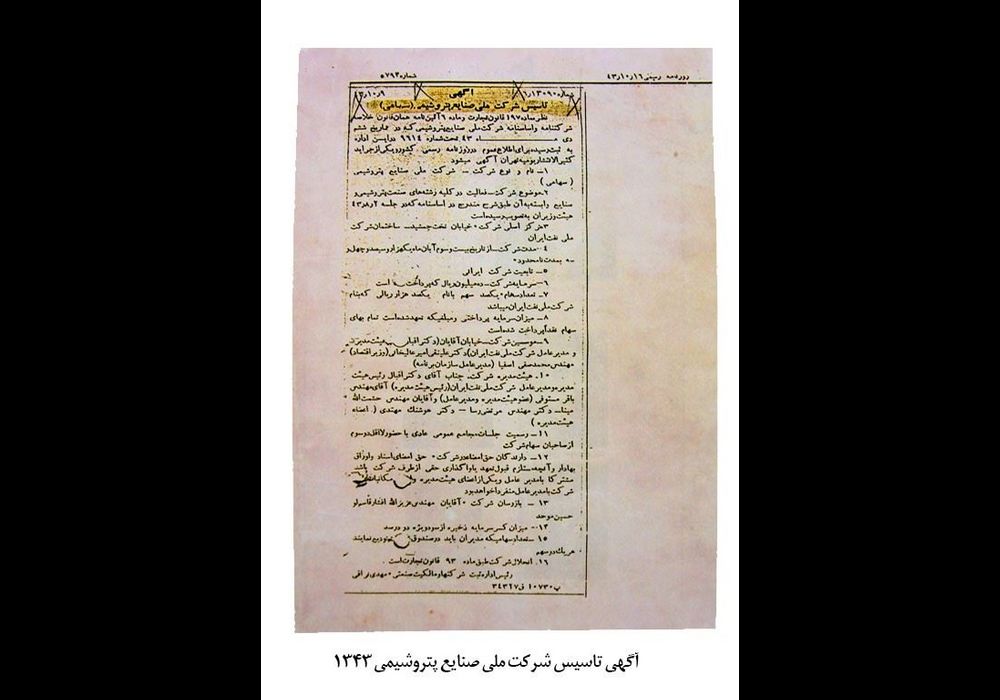 روزنامه رسمی ۱۶ر۱۰ر۴۳
شماره ۵۷۹۲
شماره ۱۳۰۹۰ر۱
آگهی
۹ر۱۰ر۴۳
تاسیس شرکت ملی صنایع پتروشیمی (سهامی)
نظر بماده ۱۹۷ قانون تجارت و ماده ۶ آئین نامه همان قانون خلاصه
شرکتنامه و اساسنامه شرکت ملی صنایع پتروشیمی که در تاریخ ششم
دی ماه ۴۳ تحت شماره ۹۶۱۴ در این اداره
به ثبت رسیده برای اطلاع عموم در روزنامه رسمی کشور و یکی از جراید
کثیرالانتشار یومیه تهران آگهی میشود
۱ـ نام و نوع شرکت ـ شرکت ملی صنایع پتروشیمی
(سهامی)
۲ـ موضوع شرکت ـ فعالیت در کلیه رشته‌های صنعت پتروشیمی و
صنایع وابسته به آن طبق شرح مندرج در اساسنامه که در جلسه ۲ر۸ر۴۳
هیئت وزیران به تصویب رسیده است
۳ـ مرکز اصلی شرکت ۰ خیابان تخت جمشید ـ ساختمان شرکت
ملی نفت ایران
۴ـ مدت شرکت ـ از تاریخ بیست و سوم آبان ماه یکهزار و سیصد و چهل و
سه بمدت نامحدود ۰
۵ ـ تابعیت شرکت ایرانی
۶ـ سرمایه شرکت ـ ده میلیون ریال که پرداخت است
۷ـ تعداد سهام ۰ یکصد سهم بانام یکصد هزار ریالی که بنام
شرکت ملی نفت ایران میباشد
۸ ـ میزان سرمایه پرداختی و مبلغیکه تعهد شده است تمام بهای
سهام نقداً پرداخت شده است
۹ـ موسسین شرکت ـ آقایان (دکتر اقبال هیئت مدیره
و مدیر عامل شرکت ملی نفت ایران) دکتر علینقی امیر عالیخانی (وزیر اقتصاد)
مهندس محمد صفی اصفیا (مدیر عامل سازمان برنامه)
۱۰ـ هیئت مدیره شرکت ـ جناب آقای دکتر اقبال رئیس هیئت
مدیره و مدیر عامل شرکت ملی نفت ایران (رئیس هیئت مدیره) آقای مهندس
باقر مستوفی (عضو هیئت مدیره و مدیر عامل) و آقایان مهندس حشمت الله
مینا ـ دکتر مهندس مرتضی رسا ـ دکتر هوشنگ مهتدی (اعضاء
هیئت مدیره)
۱۱ـ رسمیت جلسات مجامع عمومی عادی با حضور لااقل دو سوم
از صاحبان سهام شرکت
۱۲ـ دارندگان حق امضاء در شرکت ۰ حق امضای اسناد و اوراق
بهادار و آنچه مستلزم قبول تعهد یا واگذاری حقی از طرف شرکت باشد
مشترکا با مدیر عامل و یکی از اعضای هیئت مدیره و مکاتبات
شرکت با مدیر عامل منفردا خواهد بود
۱۳ ـ بازرسان شرکت ۰ آقایان مهندس عزیزالله افشار قاسملو
حسین موحد
۱۴ـ میزان کسر سرمایه ذخیره از سود ویژه ده درصد
۱۵ ـ تعداد سهامیکه مدیران باید در صندوق تودیع نمایند
هر یک دو سهم
۱۶ـ انحلال شرکت طبق ماده ۹۳ قانون تجارت است
رئیس اداره ثبت شرکتها و مالکیت صنعتی ـ مهدی نراقی
پ ۱۰۷۳۰ ق ۳۴۳۲۷
آگهی تاسیس شرکت ملی صنایع پتروشیمی ۱۳۴۳